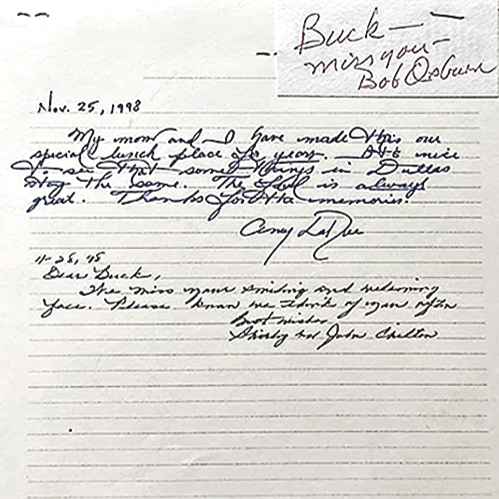 Buck —
miss you —
Bob Osburn
Nov. 25, 1998
My mom and I have made this our
special lunch place for years. It's nice
to see that some things in Dallas
stay the same. The food is always
great. Thanks for the memories.
11-25, 98
Dear Buck,
We miss your smiling and welcoming
face. Please know we think of you often
Best wishes
and John Chilton